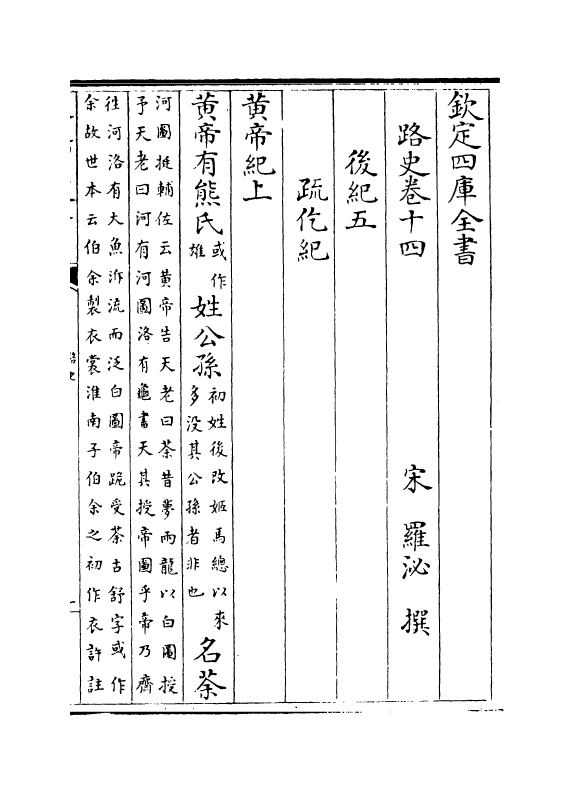 欽定四庫全書
路史卷十四 宋 羅泌 撰
後紀五
疏仡紀
黄帝紀上
黄帝有熊氏 或作雄 姓公孫 初姓後改姬馬總以來多没其公孫者非也 名荼
河圖挺輔佐云黄帝告天老曰荼昔夢兩龍以白圖授
予天老曰河有河圖洛有龜書天其授帝圖乎帝乃齊
徃河洛有大魚泝流而泛白圖帝跪受荼古舒字或作
余故世本云伯余製衣裳淮南子伯余之初作衣許註